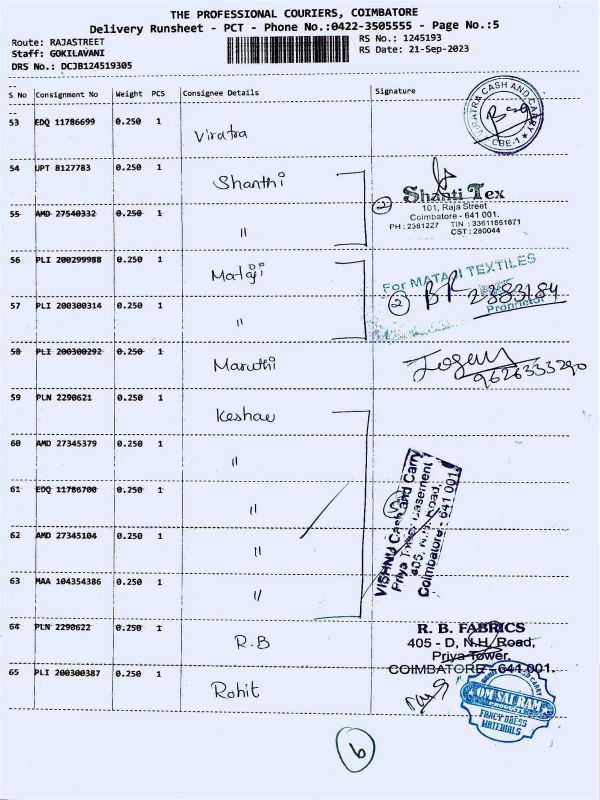 THE PROFESSIONAL COURIERS, COIMBATORE
Delivery Runsheet - PCT - Phone No.:0422-3505555 - Page No.:5
Route: RAJASTREET RS No.: 1245193
Staff: GOKILAVANI RS Date: 21-Sep-2023
DRS No.: DCJB124519305
S No Consignment No Weight PCS Consignee Details Signature
53 EDQ 11786699 0.250 1 Viratra
VIRATRA CASH AND CARRY
CBE-1
54 UPT 8127783 0.250 1 Shanthi
Shanti Tex
101, Raja Street
Coimbatore - 641 001.
PH : 2381227 TIN : 33611861671
CST : 280044
55 AMD 27540332 0.250 1 "
2
56 PLI 200299988 0.250 1 Mataji
For MATAJI TEXTILES
57 PLI 200300314 0.250 1 "
2 2383184
Proprietor
58 PLI 200300292 0.250 1 Maruthi
9626333290
59 PLN 2290621 0.250 1 Keshav
60 AMD 27345379 0.250 1 "
61 EDQ 11786700 0.250 1 "
5
VISHNU Cash and Carry
Priya Tower Basement
405, N.H. Road,
Coimbatore - 641 001.
62 AMD 27345104 0.250 1 "
63 MAA 104354386 0.250 1 "
64 PLN 2290622 0.250 1 R.B
R. B. FABRICS
405 - D, N.H. Road,
Priya Tower,
COIMBATORE - 641 001.
65 PLI 200300387 0.250 1 Rohit
OM SAI RAM
FANCY DRESS
MATERIALS
6